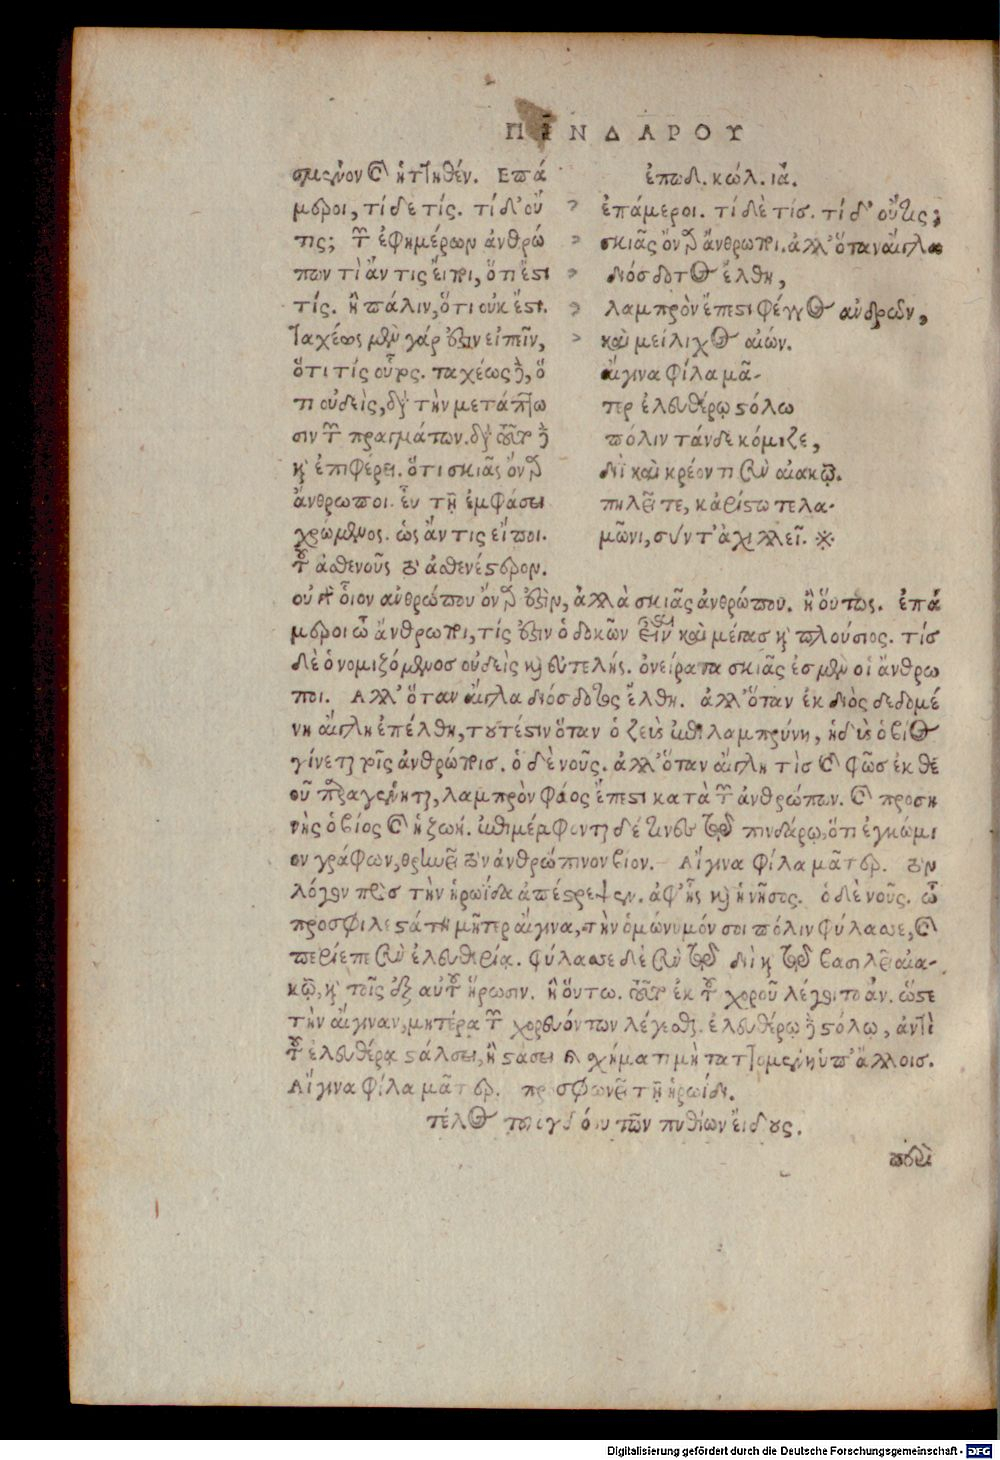 ΠΙΝΔΑΡΟΥ
σμένον καὶ ἡττηθέν. Επά
μεροι, τί δέ τίς. τί δ' οὔ
τις; τῶν ἐφημέρων ἀνθρώ
πων τὶ ἄν τις εἴποι, ὅτι ἔστι
τίς. ἢ πάλιν, ὅτι οὐκ ἔστι.
ταχέως μὲν γάρ ἐστιν εἰπεῖν,
ὅτι τίς οὗτος. ταχέως δὲ, ὅ
τι οὐδεὶς, διὰ τὴν μετάπτω
σιν τῶν πραγμάτων. διὰ τοῦτο δὲ
καὶ ἐπιφέρει. ὅτι σκιᾶς ὄναρ
ἄνθρωποι. εὖ τῇ ἐμφάσει
χρώμενος. ὡς ἄν τις εἴποι.
τοῦ ἀσθενοῦς τὸ ἀσθενέστερον.
ἐπωδ. κώλ. ια.
ἐπάμεροι. τί δὲ τίσ. τί δ' οὔτις;
σκιᾶς ὄναρ ἄνθρωποι. ἀλλ' ὅταν αἴγλα
διόσδοτος ἔλθη,
λαμπρὸν ἔπεστι φέγγος ἀνδρῶν,
καὶ μείλιχος αἰών.
αἴγινα φίλα μᾶ-
τερ ἐλευθέρῳ στόλω
πόλιν τάνδε κόμιζε,
διῒ καὶ κρέοντι σὺν αἰακῷ.
πηλεῖ τε, κἀρίστω τελα-
μῶνι, σύν τ' ἀχιλλεῖ. ※
οὐ γὰρ οἷον ἀνθρώπου ὄναρ ἐστὶν, ἀλλὰ σκιᾶς ἀνθρώπου. ἢ οὕτως. ἐπά
μεροι ὦ ἄνθρωποι, τίς ἐστιν ὁ δοκῶν εἶναι καὶ μέγας καὶ πλούσιος. τίσ
δὲ ὁ νομιζόμενοσ οὐδεὶς καὶ εὐτελής. ὀνείρατα σκιᾶς ἐσμὲν οἱ ἄνθρω
ποι. Αλλ' ὅταν αἴγλα διόσδοτος ἔλθη. ἀλλ' ὅταν ἐκ διὸς δεδομέ
νη αἴγλη ἐπέλθη, τουτέστιν ὅταν ὁ ζεὺς ἐπιλαμπρύνη, ἡδὺς ὁ βίος
γίνεται τοῖς ἀνθρώποισ. ὁ δὲ νοῦς. ἀλλ' ὅταν αἴγλη τὶσ καὶ φῶσ ἐκ θε
οῦ παραγένηται, λαμπρὸν φάος ἔπεστι κατὰ τῶν ἀνθρώπων. καὶ προση
νὴς ὁ βίος καὶ ἡ ζωή. ἐπιμέμφονται δέ τινες τῷ πινδάρῳ, ὅτι ἐγκώμι
ον γράφων, θρηνεῖ τὸν ἀνθρώπινον βίον. Αἴγινα φίλα μᾶτερ. τὸν
λόγον πρὸσ τὴν ἡρωΐδα ἀπέστρεψεν. ἀφ' ἧς καὶ ἡ νῆσος. ὁ δὲ νοῦς. ὦ
προσφιλεστάτη μῆτερ αἴγινα, τὴν ὁμώνυμόν σοι πόλιν φύλασσε, καὶ
περίεπε σὺν ἐλευθερίᾳ. φύλασσε δὲ σὺν τῷ διῒ καὶ τῷ βασιλεῖ αἰα-
κῷ, καὶ τοῖς ἐξ αὐτοῦ ἥρωσιν. ἢ οὕτω. τοῦτο ἐκ τοῦ χοροῦ λέγοιτο ἄν. ὥστε
τὴν αἴγιναν, μητέρα τῶν χορευόντων λέγεσθαι. ἐλευθέρῳ δὲ στόλῳ, ἀντὶ
τοῦ ἐλευθέρᾳ στάλσει, ἢ στάσει καὶ σχήματι μὴ ταττομένη ὑπ' ἄλλοισ.
Αἴγινα φίλα μᾶτερ. προσφωνεῖ τῇ ἡρωίδι.
τέλος τοῦ ὀγδόου τῶν πυθίων εἴδους.
Digitalisierung gefördert durch die Deutsche Forschungsgemeinschaft - DFG